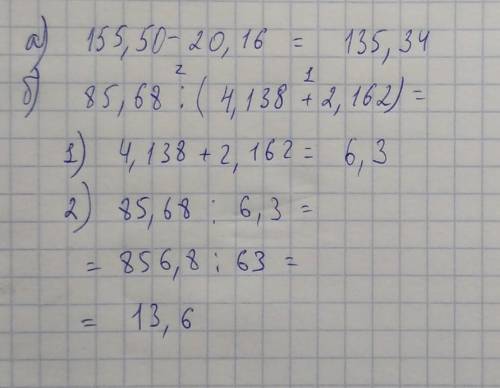 а) 155,50 - 20,16 = 135,34
б) 85,68 : ( 4,138 + 2,162) =
2 1
1) 4,138 + 2,162 = 6,3
2) 85,68 : 6,3 =
= 856,8 : 63 =
= 13,6